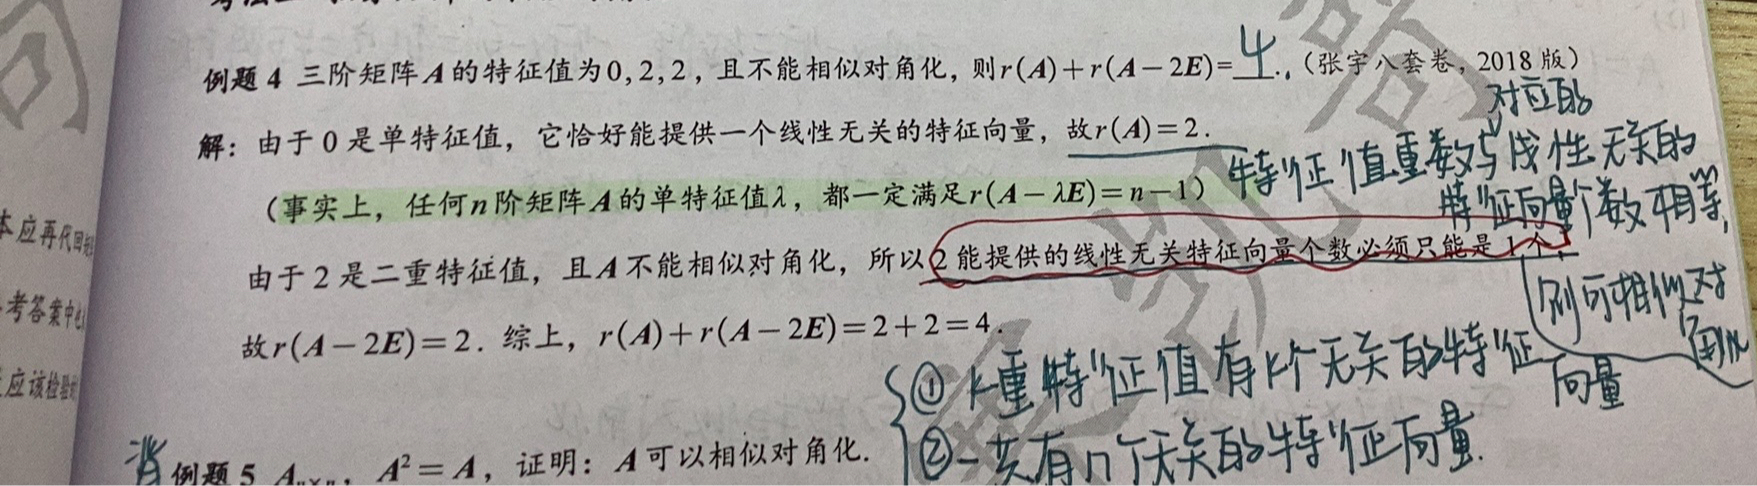 例题 4 三阶矩阵 A 的特征值为 0, 2, 2 , 且不能相似对角化, 则 r(A)+r(A-2E)= 4 . (张宇八套卷, 2018 版)
对应的
解: 由于 0 是单特征值, 它恰好能提供一个线性无关的特征向量, 故 r(A)=2.
特征值重数与线性无关的
特征向量个数相等,
(事实上, 任何 n 阶矩阵 A 的单特征值 λ, 都一定满足 r(A-λE)=n-1)
由于 2 是二重特征值, 且 A 不能相似对角化, 所以 2 能提供的线性无关特征向量个数必须只能是 1 个,
则可相似对
角化
故 r(A-2E)=2. 综上, r(A)+r(A-2E)=2+2=4.
① k重特征值有k个无关的特征
向量
② 一共有n个无关的特征向量.
例题 5 Aₙ×ₙ, A²=A, 证明: A 可以相似对角化.
本应再代回
考答案中
应该检验